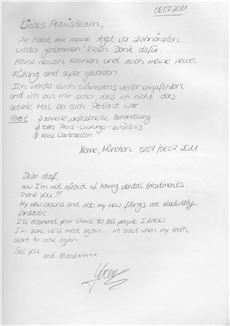 06.07.2011
Liebes Praxisteam,
ihr habt mir meine Angst vor Zahnärzten
wieder genommen! Vielen Dank dafür.
Meine neuen Kronen und auch meine neue
Füllung sind super geworden.
Ich werde euch wärmstens weiter empfehlen
und ich bin mir sicher, dass ich nicht das
letzte Mal bei euch Patient war.
Fazit: schnelle, professionelle Behandlung
tolles Preis-Leistungs-Verhältnis
keine Wartezeiten
München 06.07.2011
Dear staff,
now I'm not afraid of having dental treatments
thank you!!!
My new crowns and also my new fillings are absolutely
fantastic
I'll recomend your clinic to all people I know
I'm sure we'll meet again... at least when my teeth
start to ache again
See you
and thanks